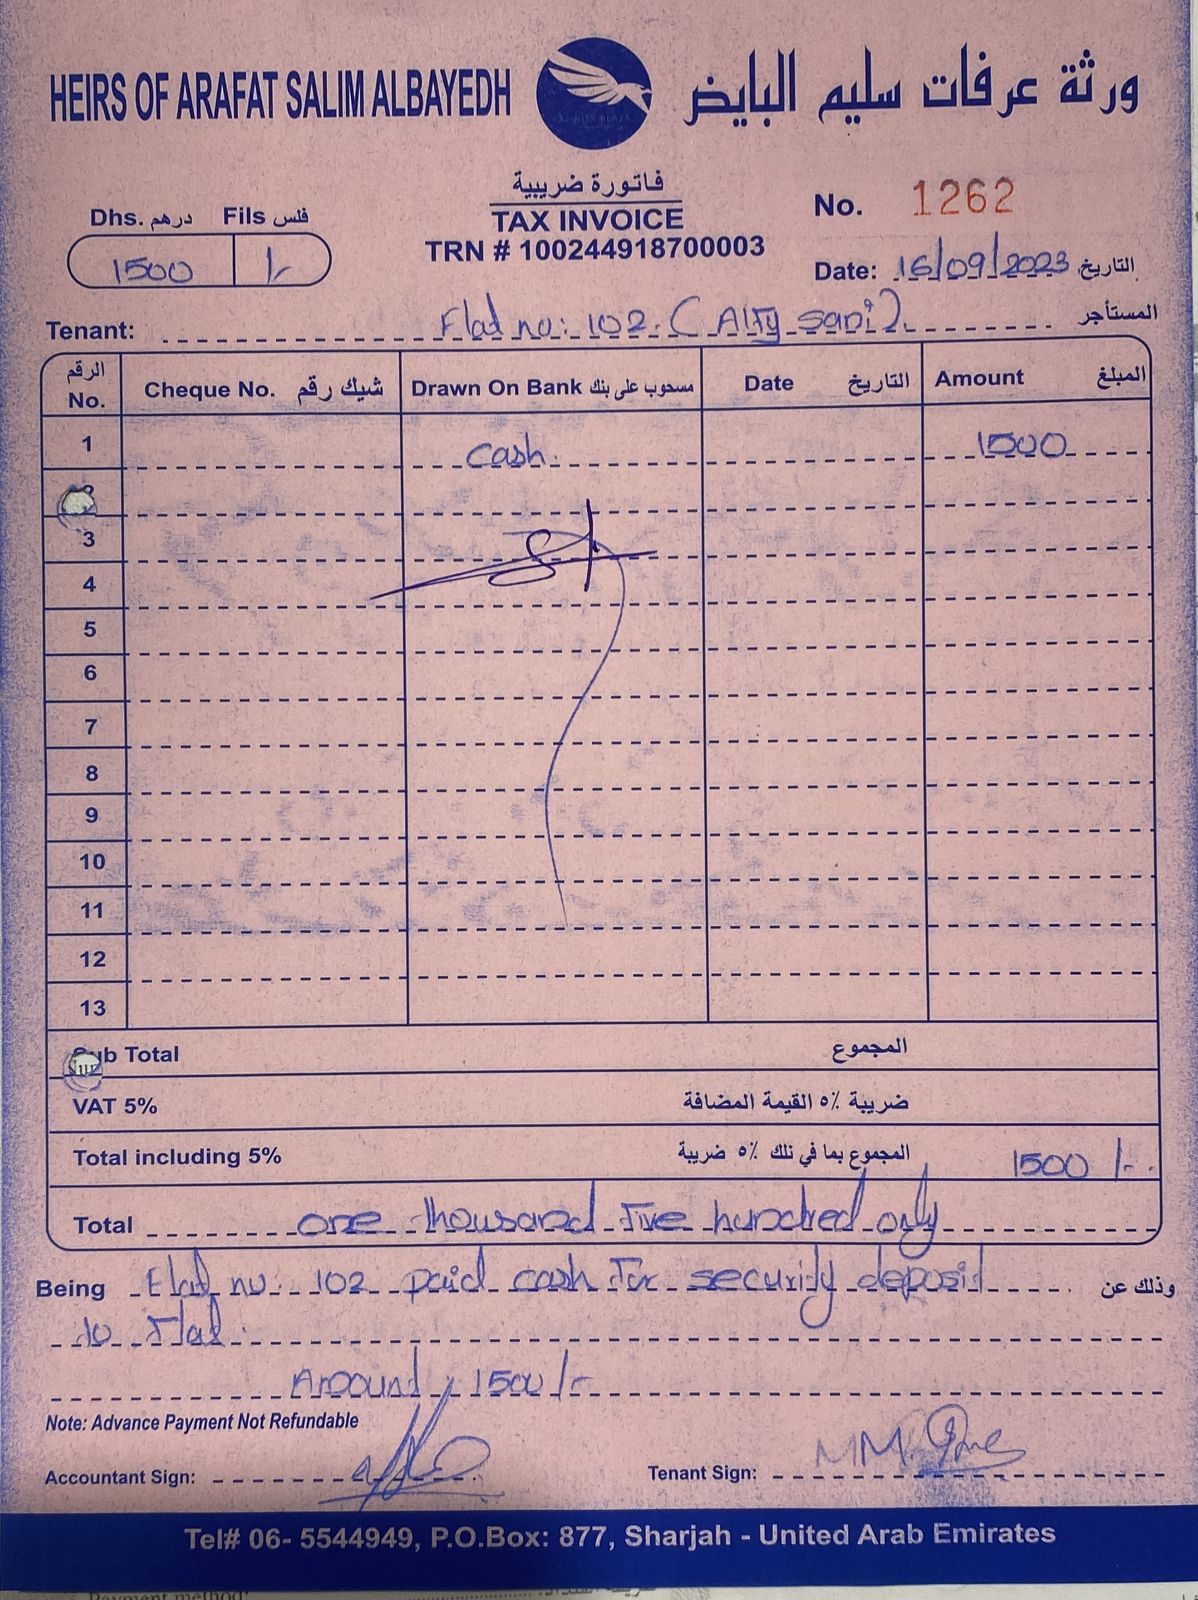 HEIRS OF ARAFAT SALIM ALBAYEDH
ورثة عرفات سليم البايض
فاتورة ضريبية
TAX INVOICE
TRN # 100244918700003
Dhs. درهم Fils فلس
1500 /-
No. 1262
Date: 16/09/2023 التاريخ
Tenant: Flat no: 102. ( Alfy sani ) المستأجر
الرقم No. Cheque No. شيك رقم Drawn On Bank مسحوب على بنك Date التاريخ Amount المبلغ
1 cash. 1500
3
4
5
6
7
8
9
10
11
12
13
Sub Total المجموع
VAT 5% ضريبة ٥٪ القيمة المضافة
Total including 5% المجموع بما في ذلك ٥٪ ضريبة 1500 /-
Total one thousand five hundred only
Being Flat no: 102 paid cash for security deposit وذلك عن
to flat.
Amount : 1500/-
Note: Advance Payment Not Refundable
Accountant Sign: Tenant Sign:
Tel# 06- 5544949, P.O.Box: 877, Sharjah - United Arab Emirates
Payment method: